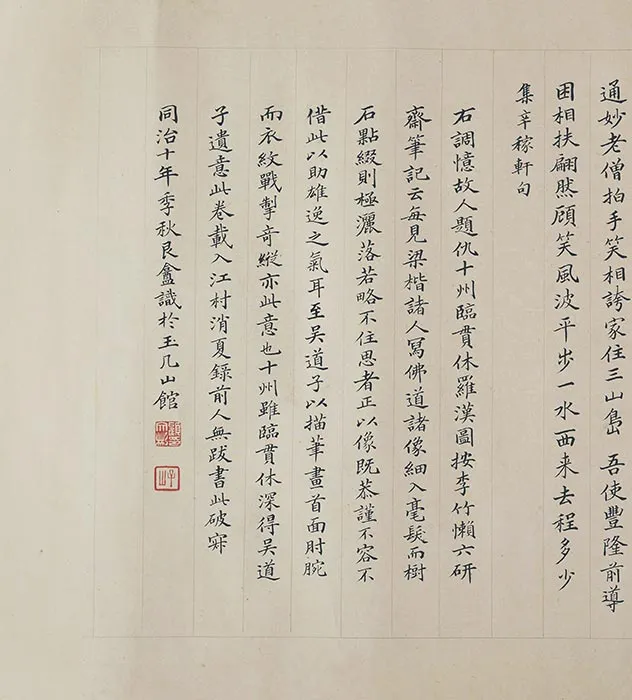 通妙老僧拍手笑相誇家住三山島 吾使豐隆前導
困相扶翩然顧笑風波平步一水西来去程多少
集辛稼軒句
右調憶故人題仇十州臨貫休羅漢圖按李竹懶六研
齋筆記云每見梁楷諸人寫佛道諸像細入毫髮而樹
石點綴則極灑落若略不住思者正以像既恭謹不容不
借此以助雄逸之氣耳至吴道子以描筆畫首面肘腕
而衣紋戰掣奇縱亦此意也十州雖臨貫休深得吴道
子遺意此卷載入江村消夏録前人無跋書此破寂
同治十年季秋艮盦識於玉几山館